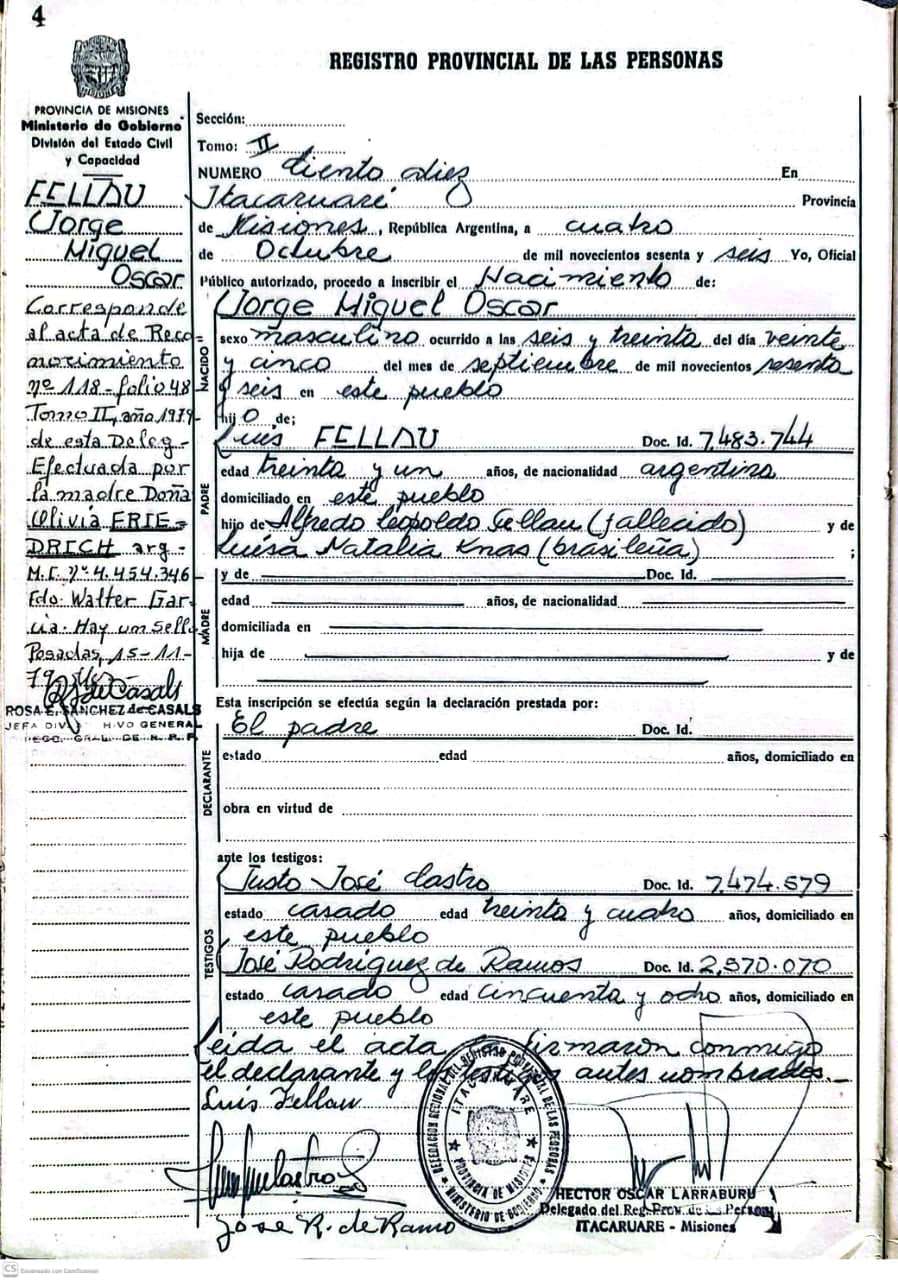 4
REGISTRO PROVINCIAL DE LAS PERSONAS
PROVINCIA DE MISIONES
Ministerio de Gobierno
División del Estado Civil
y Capacidad
FELLAU
Jorge
Miguel
Oscar
Corresponde
al acta de Reco=
nocimiento
nº 118-folio 48
Tomo II, año 1979-
de esta Deleg-
Efectuada por
la madre Doña
Olivia FRIE=
DRICH arg-
M.I. Nº 4.454.346-
Fdo. Walter Gar-
cia. Hay un sello
Posadas, 15-11-
79
ROSA E. SANCHEZ de CASALS
JEFA DIV HIVO GENERAL
REGO. GRAL. DE R. P. P.
Sección:
Tomo: II
NUMERO Ciento diez En
Itacaruaré Provincia
de Misiones, República Argentina, a cuatro
de Octubre de mil novecientos sesenta y seis Yo, Oficial
Público autorizado, procedo a inscribir el Nacimiento de:
NACIDO
Jorge Miguel Oscar
sexo masculino ocurrido a las seis y treinta del día veinte
y cinco del mes de septiembre de mil novecientos sesenta
y seis en este pueblo
hijO de;
PADRE
Luis FELLAU Doc. Id. 7.483.744
edad treinta y un años, de nacionalidad argentina
domiciliado en este pueblo
hijo de Alfredo Leopoldo Fellau (fallecido) y de
Luisa Natalia Knas (brasileña) ;
MADRE
y de Doc. Id.
edad años, de nacionalidad
domiciliada en
hija de y de
Esta inscripción se efectúa según la declaración prestada por:
DECLARANTE
El padre Doc. Id.
estado edad años, domiciliado en
obra en virtud de
ante los testigos:
TESTIGOS
Justo José Castro Doc. Id. 7.474.579
estado casado edad treinta y cuatro años, domiciliado en
este pueblo
José Rodriguez de Ramos Doc. Id. 2.570.070
estado casado edad cincuenta y ocho años, domiciliado en
este pueblo
Leida el acta firmaron conmigo
el declarante y los testigos antes nombrados.
Luis Fellau
José R. de Ramo
DELEGACION REGIONAL DEL REGISTRO PROVINCIAL DE LAS PERSONAS
ITACARUARE
PROVINCIA DE MISIONES
MINISTERIO DE GOBIERNO
HECTOR OSCAR LARRABURU
Delegado del Reg. Prov. de las Personas
ITACARUARE - Misiones
CS Escaneado con CamScanner